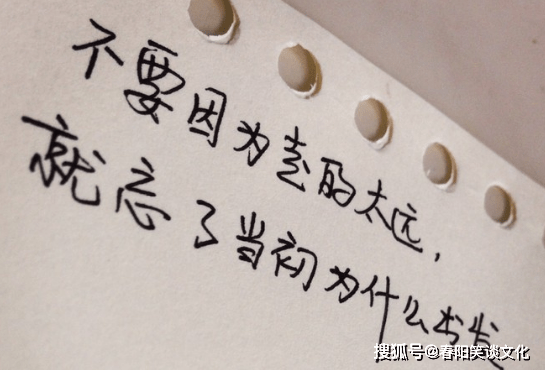 不要因为走的太远,
就忘了当初为什么出发
搜狐号@春阳笑谈文化